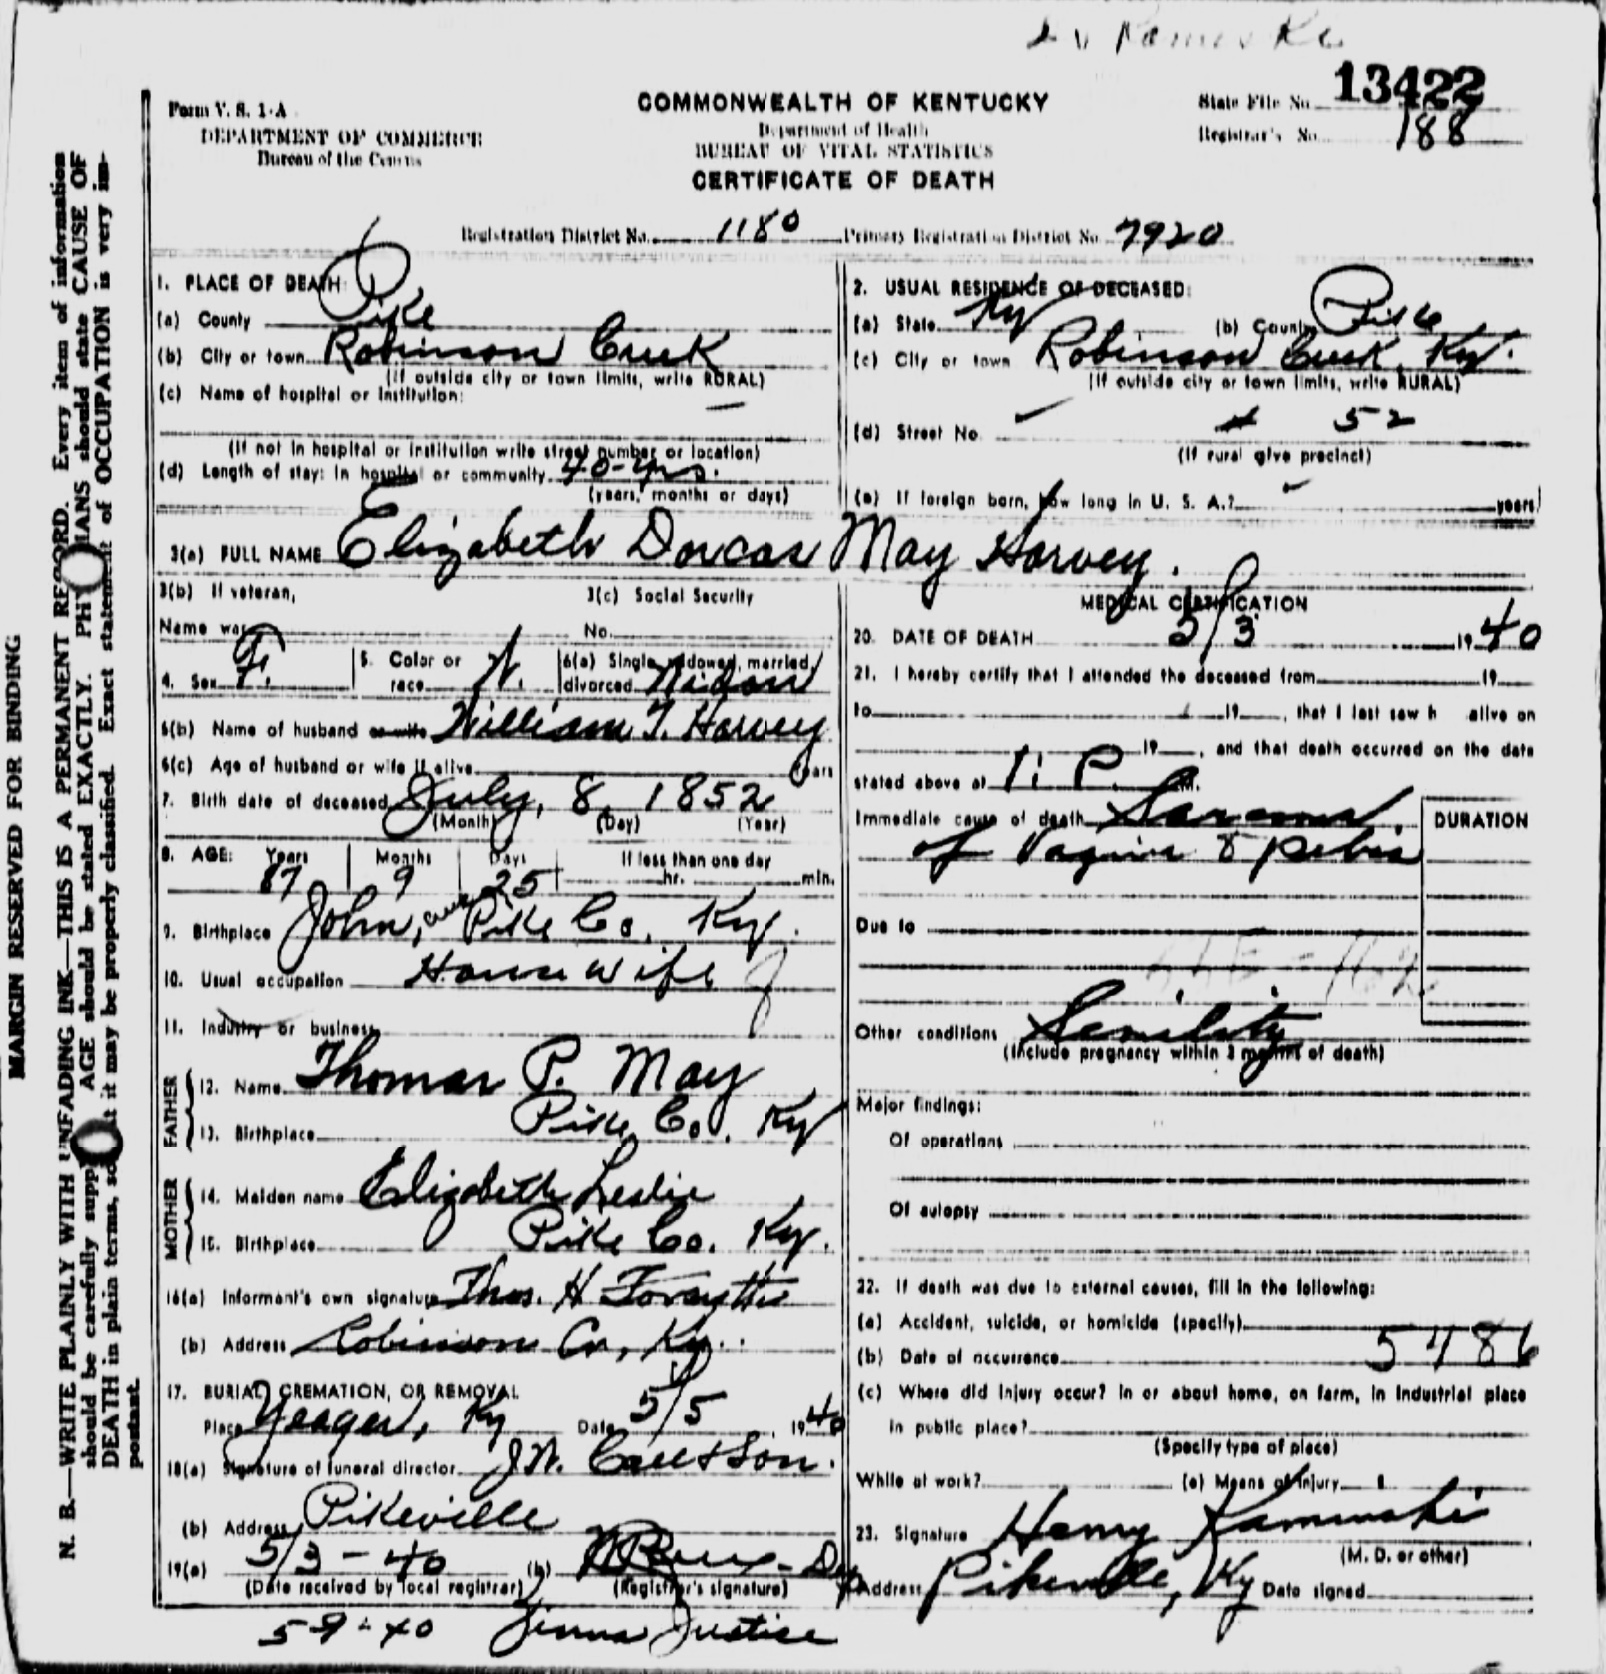 13422
Form V. S. 1-A
COMMONWEALTH OF KENTUCKY
State File No.
DEPARTMENT OF COMMERCE
Department of Health
Registrar's No. 188
Bureau of the Census
BUREAU OF VITAL STATISTICS
CERTIFICATE OF DEATH
Registration District No. 1180 Primary Registration District No. 7920
MARGIN RESERVED FOR BINDING
N. B.—WRITE PLAINLY WITH UNFADING INK—THIS IS A PERMANENT RECORD. Every item of information
should be carefully supp AGE should be stated EXACTLY. PH IANS should state CAUSE OF
DEATH in plain terms, so t it may be properly classified. Exact statement of OCCUPATION is very im-
portant.
1. PLACE OF DEATH:
(a) County Pike
(b) City or town Robinson Creek
(If outside city or town limits, write RURAL)
(c) Name of hospital or institution: —
(If not in hospital or institution write street number or location)
(d) Length of stay: In hospital or community 40-yrs.
(years, months or days)
2. USUAL RESIDENCE OF DECEASED:
(a) State Ky (b) County Pike
(c) City or town Robinson Creek, Ky.
(If outside city or town limits, write RURAL)
(d) Street No. # 52
(If rural give precinct)
(e) If foreign born, how long in U. S. A.? years
3(a) FULL NAME Elizabeth Dorcas May Harvey.
3(b) If veteran, 3(c) Social Security
Name war No.
4. Sex F. 5. Color or race W. 6(a) Single, widowed, married, divorced Widow
6(b) Name of husband or wife William T. Harvey
6(c) Age of husband or wife if alive years
7. Birth date of deceased July, 8, 1852
(Month) (Day) (Year)
8. AGE: Years Months Days If less than one day
87 9 25 hr. min.
9. Birthplace John, Pike Co. Ky.
10. Usual occupation House wife
11. Industry or business
FATHER
12. Name Thomas P. May
13. Birthplace Pike Co., Ky
MOTHER
14. Maiden name Elizabeth Leslie
15. Birthplace Pike Co. Ky.
16(a) Informant's own signature Thos. H Forsythe
(b) Address Robinson Cr, Ky.
17. BURIAL, CREMATION, OR REMOVAL
Place Yeager, Ky Date 5/5, 1940
18(a) Signature of funeral director J.W. Call & Son.
(b) Address Pikeville
19(a) 5/3-40 (b)
(Date received by local registrar) (Registrar's signature)
5-9-40 Justice
MEDICAL CERTIFICATION
20. DATE OF DEATH 5/3 1940
21. I hereby certify that I attended the deceased from 19
to 19 , that I last saw h alive on
19 , and that death occurred on the date
stated above at P. M.
Immediate cause of death Sarcoma DURATION
of Vagina & pelvis
Due to
Other conditions Senility
(Include pregnancy within 3 months of death)
Major findings:
Of operations
Of autopsy
22. If death was due to external causes, fill in the following:
(a) Accident, suicide, or homicide (specify)
(b) Date of occurrence 5486
(c) Where did injury occur? In or about home, on farm, in industrial place
in public place?
(Specify type of place)
While at work? (e) Means of injury
23. Signature Henry Kaminski
(M. D. or other)
Address Pikeville, Ky Date signed